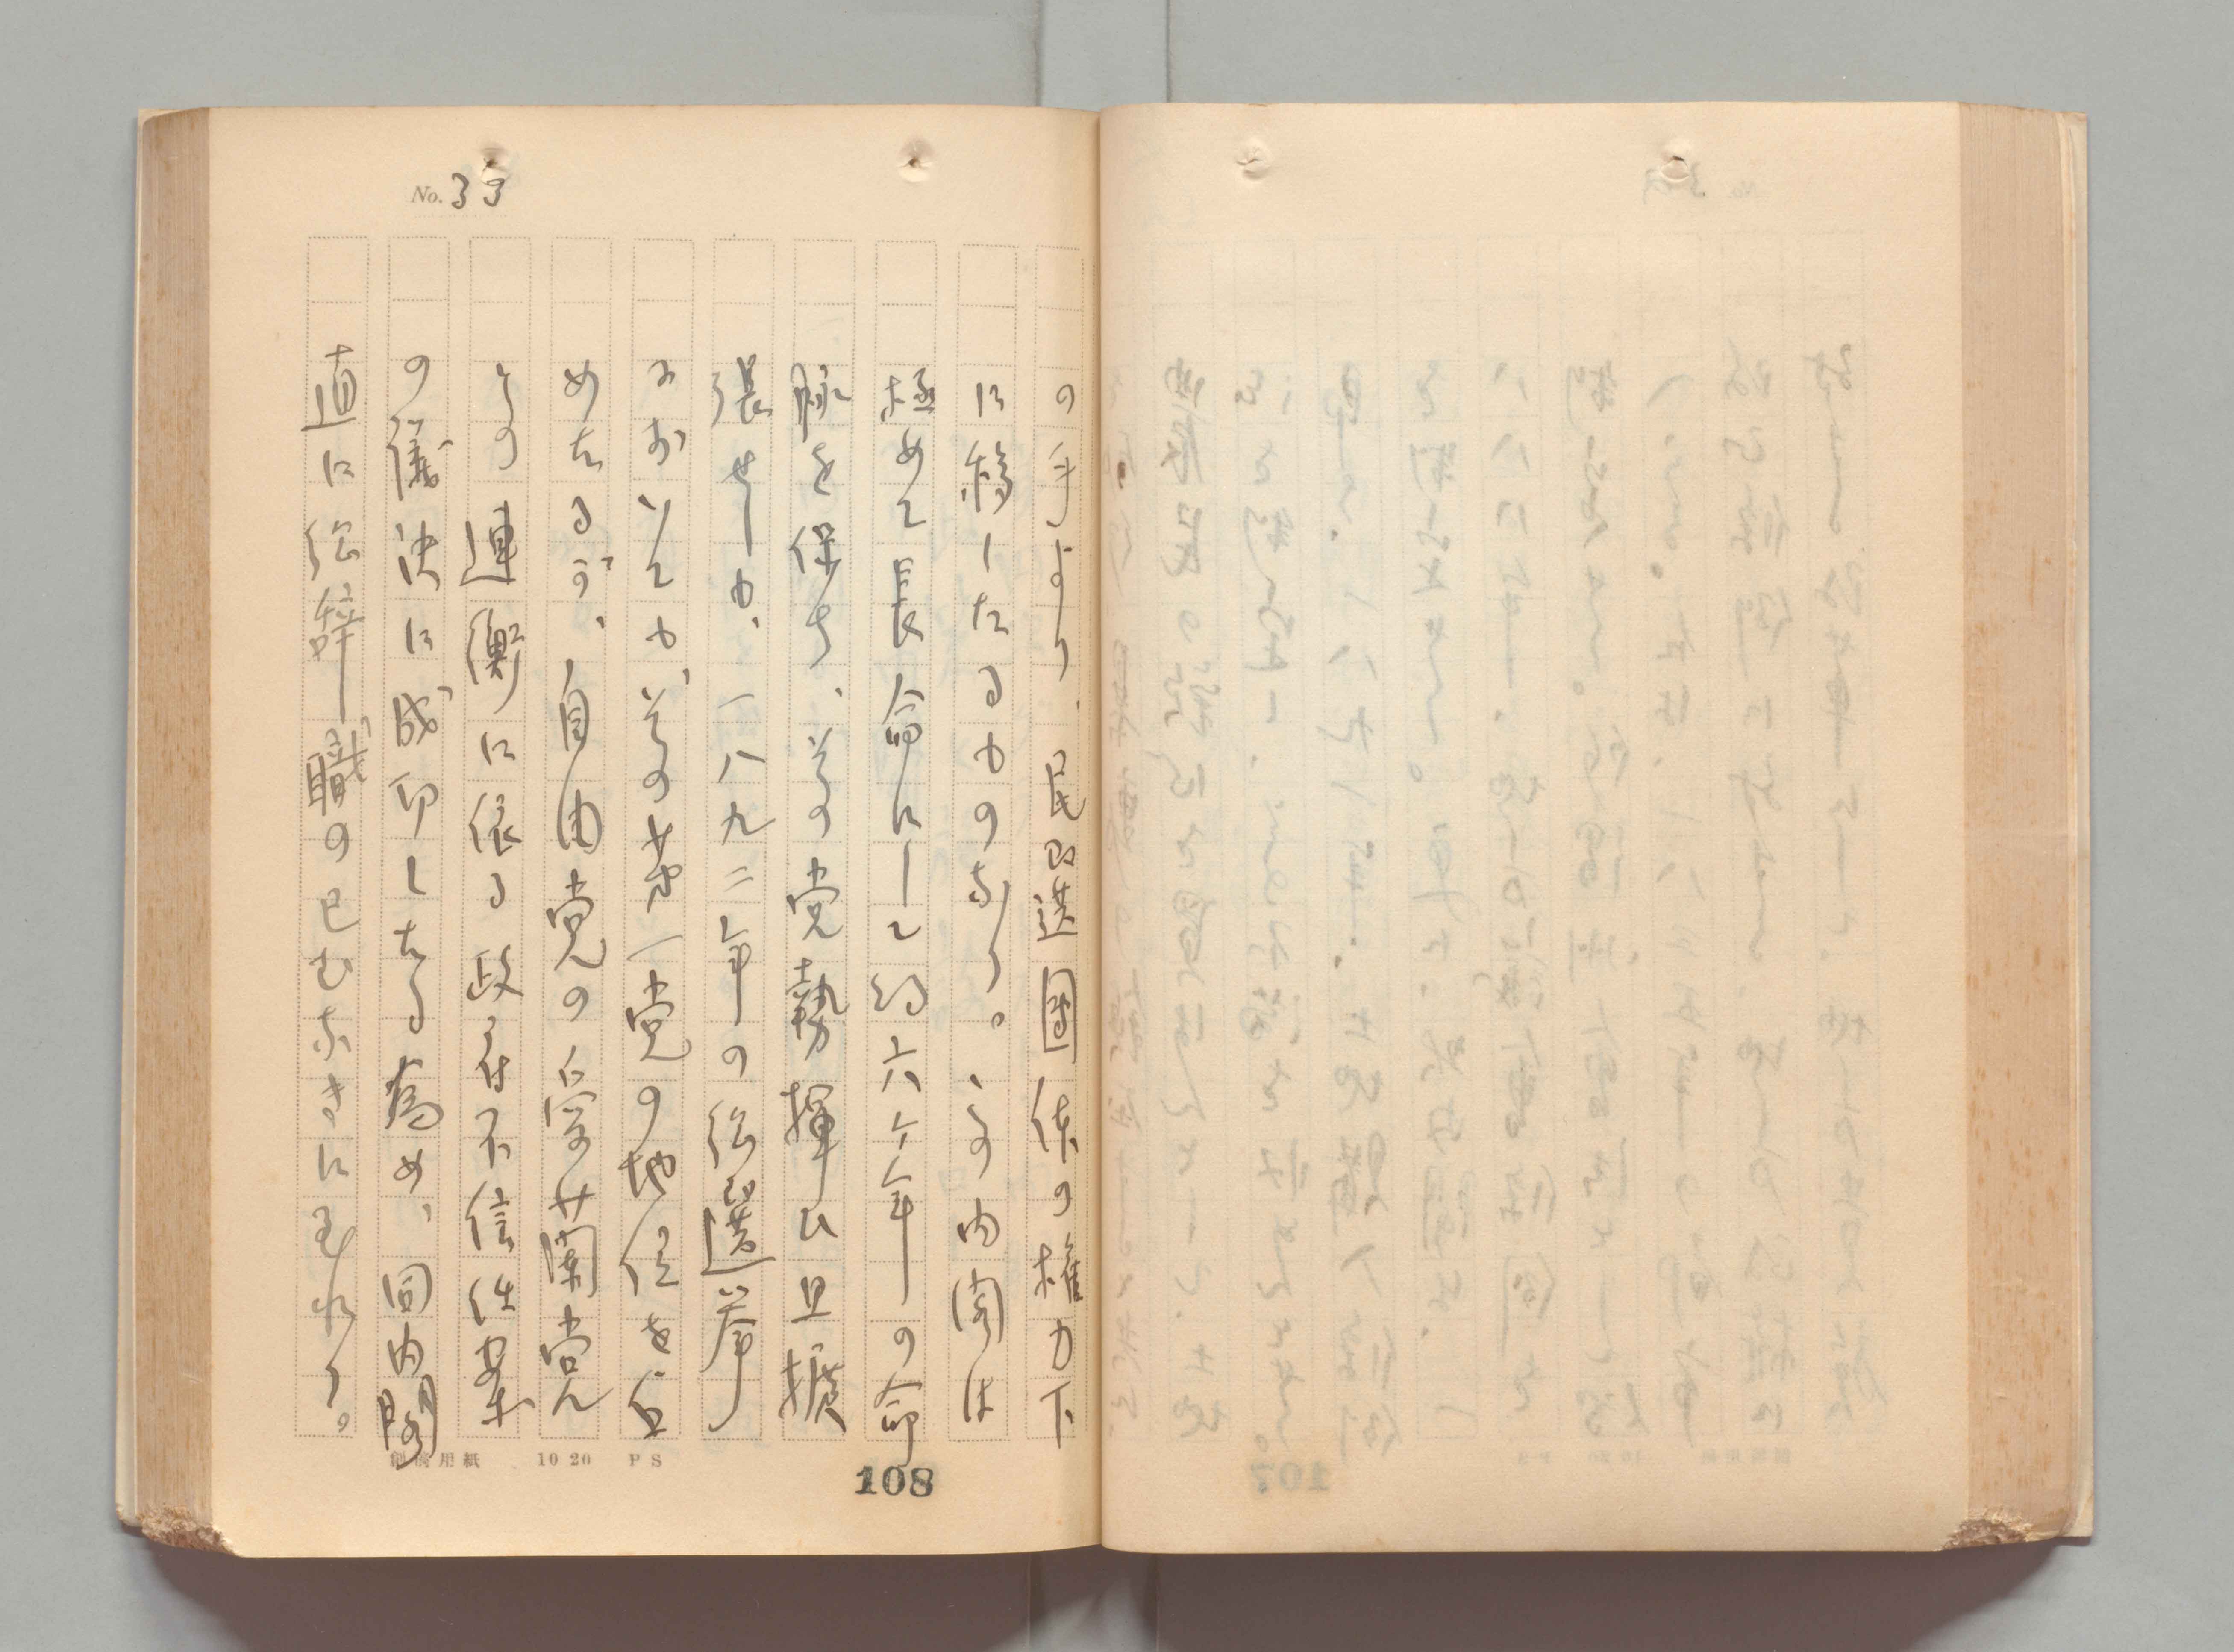 No. 33
の手より、民选国体の権力下
に移したるものなり。この内閣は
极めて長命にして約六ヶ年の命
脉を保ち、その党勢揮ひ且拡
張せしも、一八九二年の総選挙
においても、その第一党の地位を占
めたるが、自由党の愛蘭党
との連衡に依る政府不信任案
の議決に成功したる為め、同内閣
直に総辞職の已むなきに至れり。
用紙 10 20 PS
108